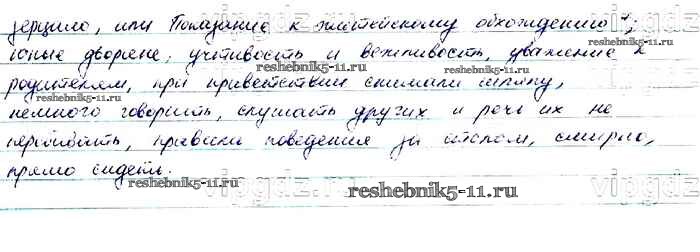 зерцало, или Показание к житейскому обхождению";
юные дворяне; учтивость и вежливость, уважение к
reshebnik5-11.ru
родителям, при приветствии снимали шляпу,
reshebnik5-11.ru reshebnik5-11.ru
немного говорить, слушать других и речь их не
перебивать, правила поведения за столом, смирно,
reshebnik5-11.ru
прямо сидеть.
reshebnik5-11.ru
vipgdz.ru
reshebnik5-11.ru